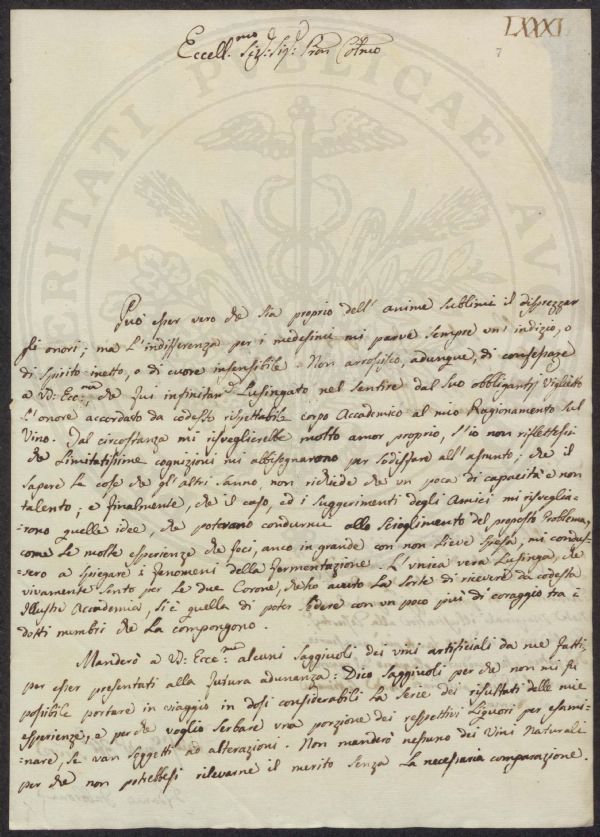 LXXXI
7
Eccell.mo Sig.r Sig.r Pron Colmo
Può esser vero che sia proprio dell' anime sublimi il disprezzar
gli onori; ma l'indifferenza per i medesimi mi parve sempre un' indizio, o
di spirito inetto, o di cuore insensibile. Non arrossisco, adunque, di confessare
a V.ª Ecc.za, che fui infinitam.e lusingato nel sentire dal suo obbligantis.o Viglietto
l'onore accordato da codesto rispettabile corpo Accademico al mio Ragionamento sul
Vino. Tal circostanza mi risveglierebbe molto amor proprio, s'io non riflettessi
che limitatissime cognizioni mi abbisognarono per sodisfare all' assunto; che il
sapere le cose che gl'altri sanno, non richiede che un poca di capacità e non
talento; e finalmente, che il caso, ed i suggerimenti degli Amici mi risveglia-
=rono quelle idee, che potevano condurmi allo scioglimento del proposto Problema,
come le molte esperienze che feci, anco in grande con non lieve spesa, mi condus-
=sero a spiegare i fenomeni della fermentazione. L'unica vera lusinga, che
vivamente sento per le due Corone, che ho avuto la sorte di ricevere da codesta
Illustre Accademia, si è quella di poter sedere con un poco più di coraggio tra i
dotti membri che la compongono.
Manderò a V.ª Ecce.za alcuni saggiuoli dei vini artificiali da me fatti,
per esser presentati alla futura adunanza: Dico saggiuoli per che non mi fu
possibile portare in viaggio in dosi considerabili la serie dei risultati delle mie
esperienze, e per che voglio serbare una porzione dei respettivi liquori per esami-
nare, se van soggetti ad alterazioni. Non manderò nessuno dei Vini Naturali
per che non potrebbesi rilevarne il merito senza la necessaria comparazione.
VERITATI PUBLICAE